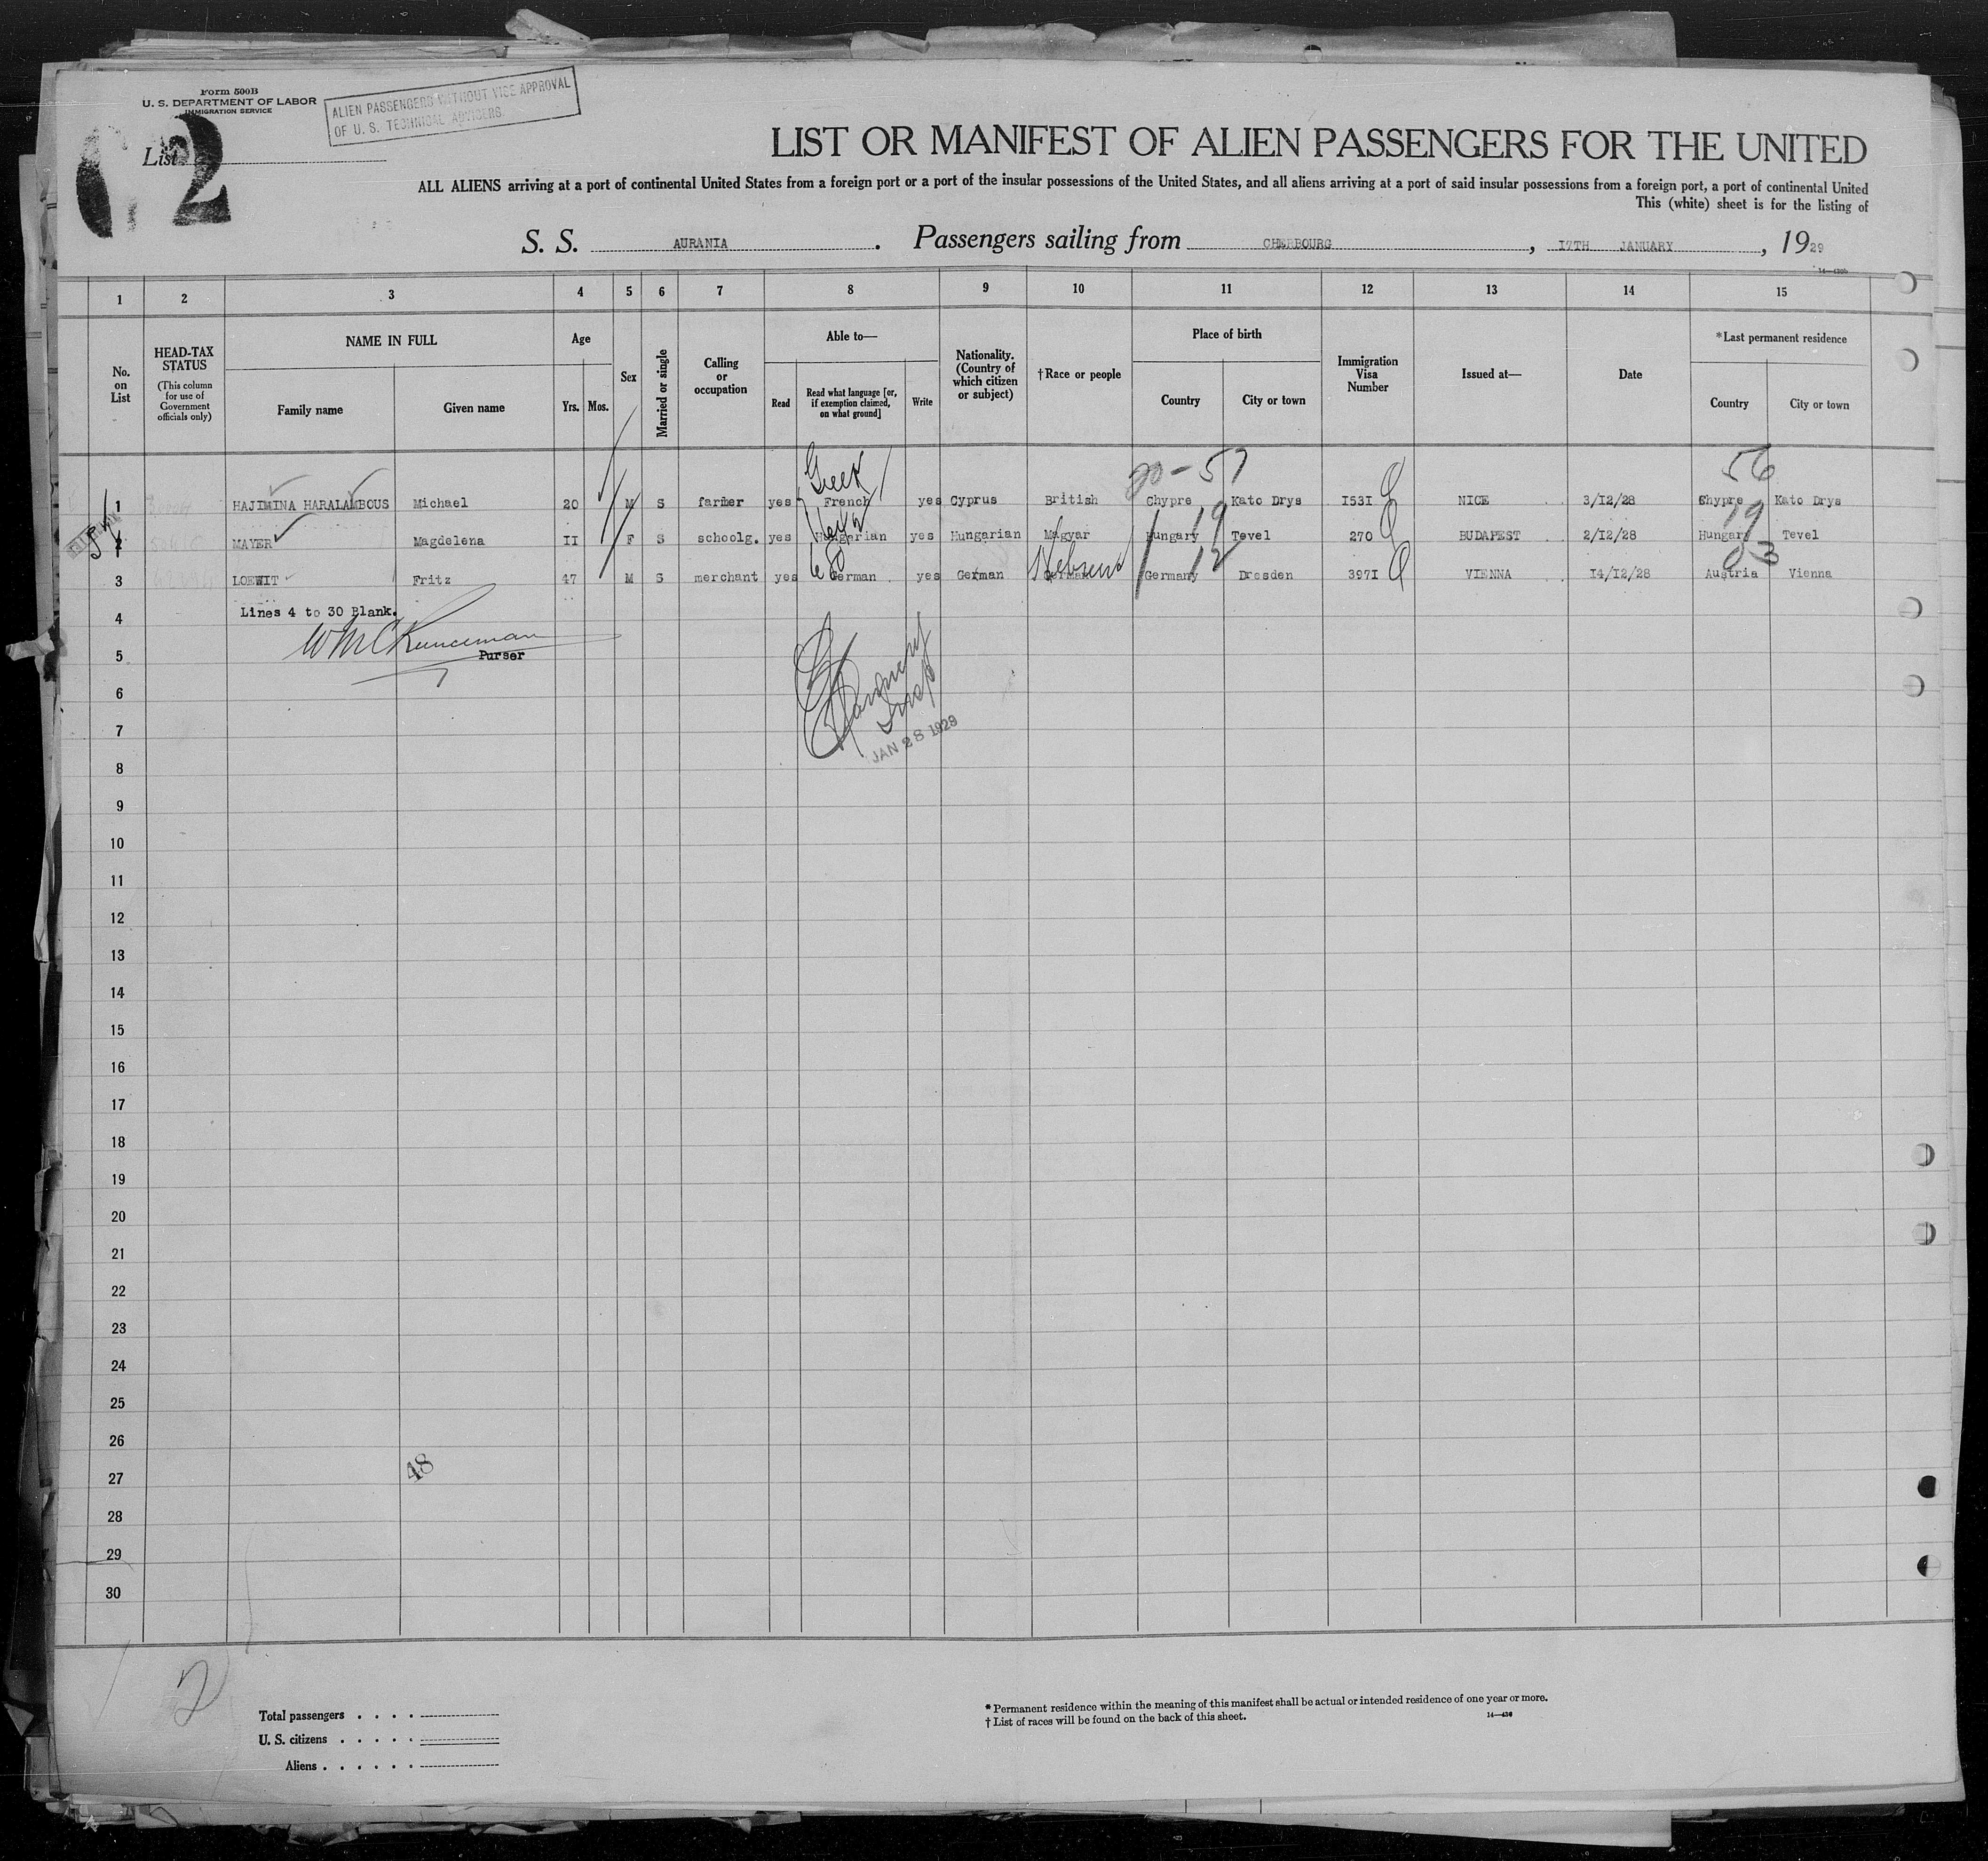 Form 500B
U. S. DEPARTMENT OF LABOR
IMMIGRATION SERVICE
ALIEN PASSENGERS WITHOUT VICE APPROVAL
OF U. S. TECHNICAL ADVISERS
List
2
LIST OR MANIFEST OF ALIEN PASSENGERS FOR THE UNITED
ALL ALIENS arriving at a port of continental United States from a foreign port or a port of the insular possessions of the United States, and all aliens arriving at a port of said insular possessions from a foreign port, a port of continental United
This (white) sheet is for the listing of
S. S. AURANIA. Passengers sailing from CHERBOURG, 17TH JANUARY, 1929
14—430b
1 2 3 4 5 6 7 8 9 10 11 12 13 14 15
No. on List
HEAD-TAX STATUS (This column for use of Government officials only)
NAME IN FULL
Family name Given name
Age
Yrs. Mos.
Sex
Married or single
Calling or occupation
Able to—
Read Read what language [or, if exemption claimed, on what ground] Write
Nationality. (Country of which citizen or subject)
†Race or people
Place of birth
Country City or town
Immigration Visa Number
Issued at—
Date
*Last permanent residence
Country City or town
Greek 20-57 56
1 HAJIMINA HARALAMBOUS Michael 20 M S farmer yes French yes Cyprus British Chypre Kato Drys I53I NICE 3/12/28 Chypre Kato Drys
19 19
2 MAYER Magdelena II F S schoolg. yes Hungarian yes Hungarian Magyar Hungary Tevel 270 BUDAPEST 2/12/28 Hungary Tevel
Hebrew 12 03
3 LOEWIT Fritz 47 M S merchant yes German yes German German Germany Dresden 397I VIENNA 14/12/28 Austria Vienna
4 Lines 4 to 30 Blank.
5 Purser
6
7 JAN 28 1929
8
9
10
11
12
13
14
15
16
17
18
19
20
21
22
23
24
25
26
27 48
28
29
30
2
Total passengers
U. S. citizens
Aliens
* Permanent residence within the meaning of this manifest shall be actual or intended residence of one year or more.
† List of races will be found on the back of this sheet.
14—430